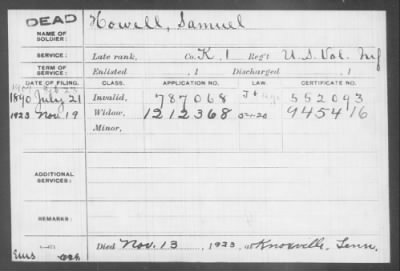 DEAD
NAME OF SOLDIER: Howell, Samuel
SERVICE: Late rank, Co. K, 1 Reg't U.S. Vol. Inf
TERM OF SERVICE: Enlisted , 1 Discharged , 1
DATE OF FILING. CLASS. APPLICATION NO. LAW. CERTIFICATE NO.
1890 July 21 Invalid, 787068 552093
1923 Nov. 19 Widow, 1212368 5-1-20 945416
Minor,
ADDITIONAL SERVICES:
REMARKS:
Died Nov. 13, 1923, at Knoxville, Tenn.